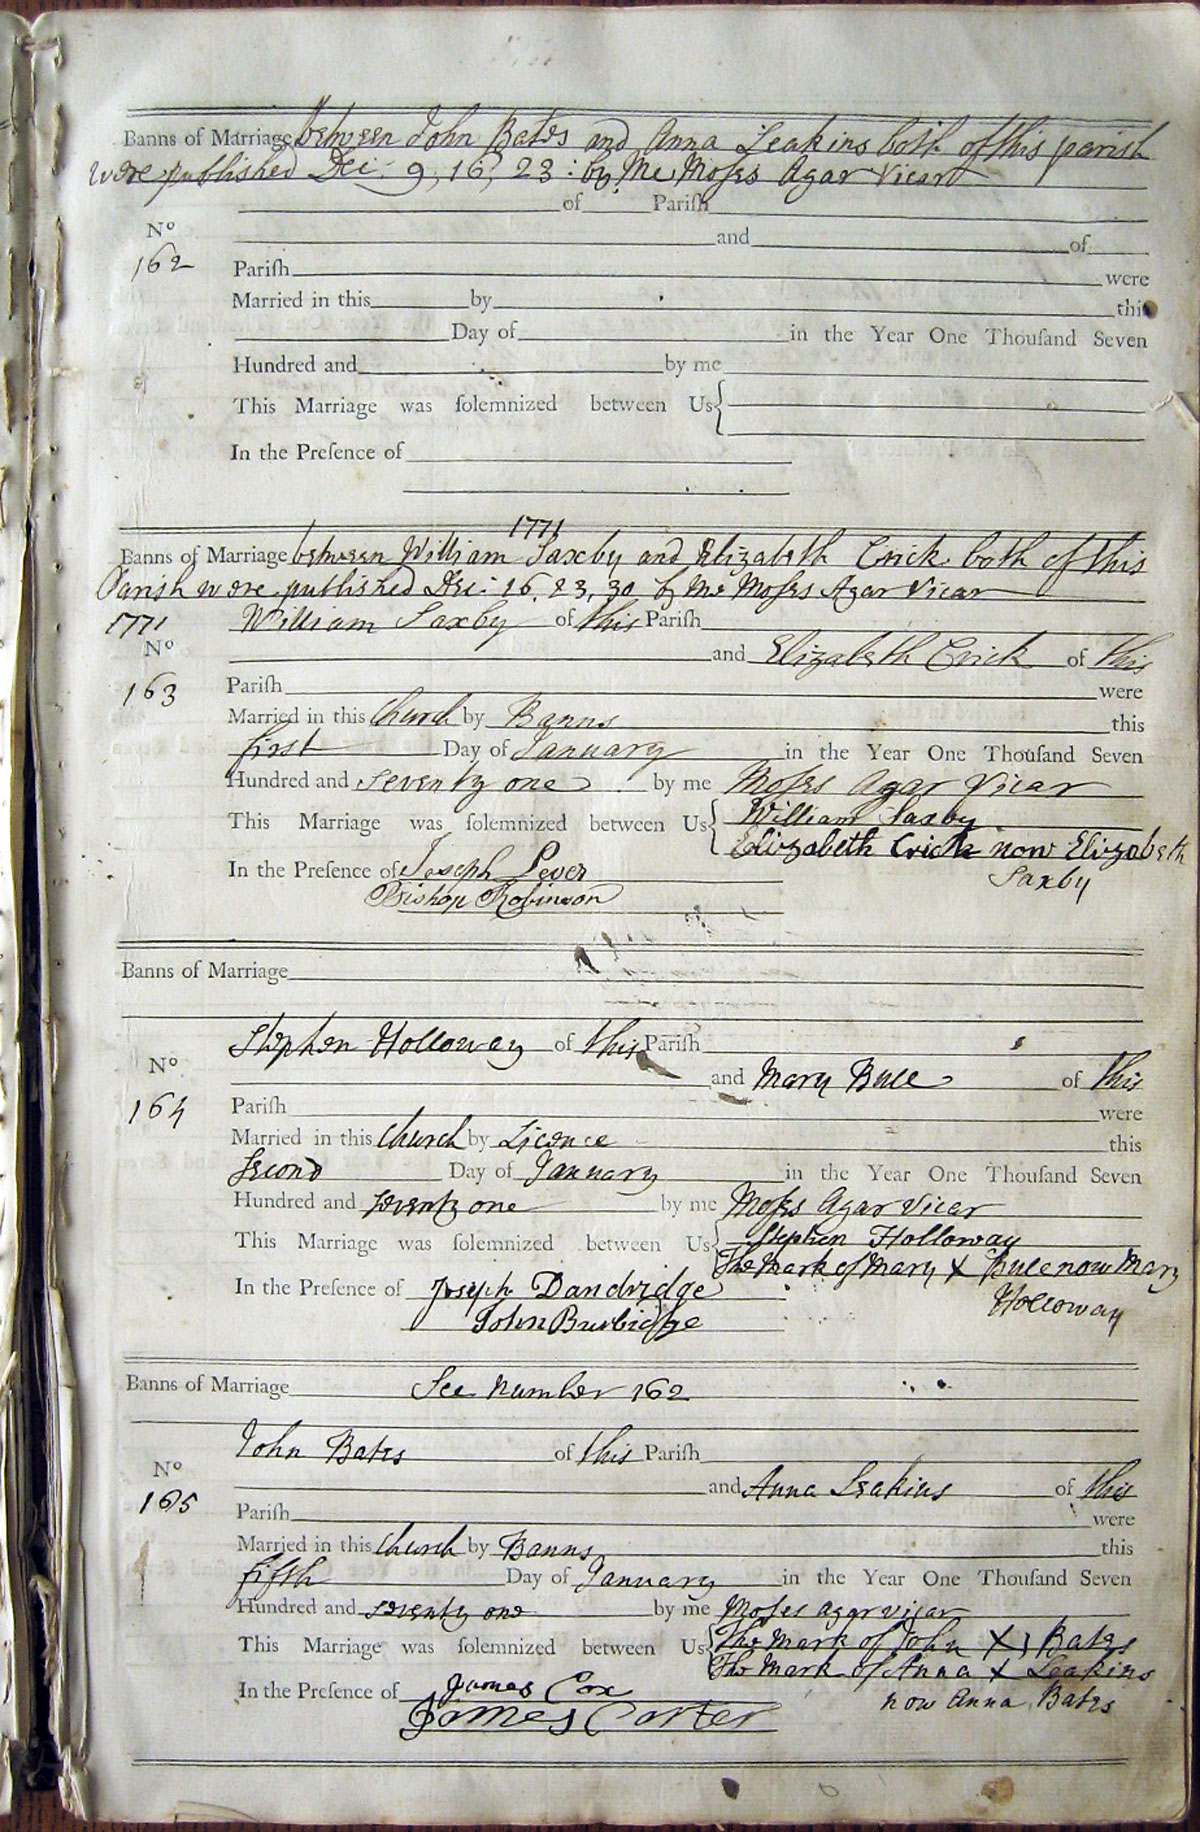 Banns of Marriage between John Bates and Anna Leakins both of this parish
were published Dec: 9, 16, 23: by Me Moſes Agar Vicar
of Pariſh
No
and of
162
Pariſh were
Married in this by this
Day of in the Year One Thouſand Seven
Hundred and by me
This Marriage was ſolemnized between Us
In the Preſence of
1771
Banns of Marriage between William Saxby and Elizabeth Crick both of this
Parish were published Dec: 16, 23, 30 by Me Moſes Agar Vicar
1771 William Saxby of this Pariſh
No
and Elizabeth Crick of this
163
Pariſh were
Married in this Church by Banns this
first Day of January in the Year One Thouſand Seven
Hundred and seventy one by me Moſes Agar Vicar
This Marriage was ſolemnized between Us William Saxby
Elizabeth Crick now Elizabeth
Saxby
In the Preſence of Joseph Lever
Bishop Robinson
Banns of Marriage
Stephen Holloway of this Pariſh
No
and Mary Bull of this
164
Pariſh were
Married in this Church by Licence this
Second Day of January in the Year One Thouſand Seven
Hundred and seventy one by me Moſes Agar Vicar
This Marriage was ſolemnized between Us Stephen Holloway
The Mark of Mary X Bull now Mary
Holloway
In the Preſence of Joseph Dandridge
John Burbidge
Banns of Marriage See number 162
John Bates of this Pariſh
No
and Anna Leakins of this
165
Pariſh were
Married in this Church by Banns this
fifth Day of January in the Year One Thouſand Seven
Hundred and seventy one by me Moses Agar Vicar
This Marriage was ſolemnized between Us The Mark of John X Bates
The Mark of Anna X Leakins
now Anna Bates
In the Preſence of James Cox
James Carter